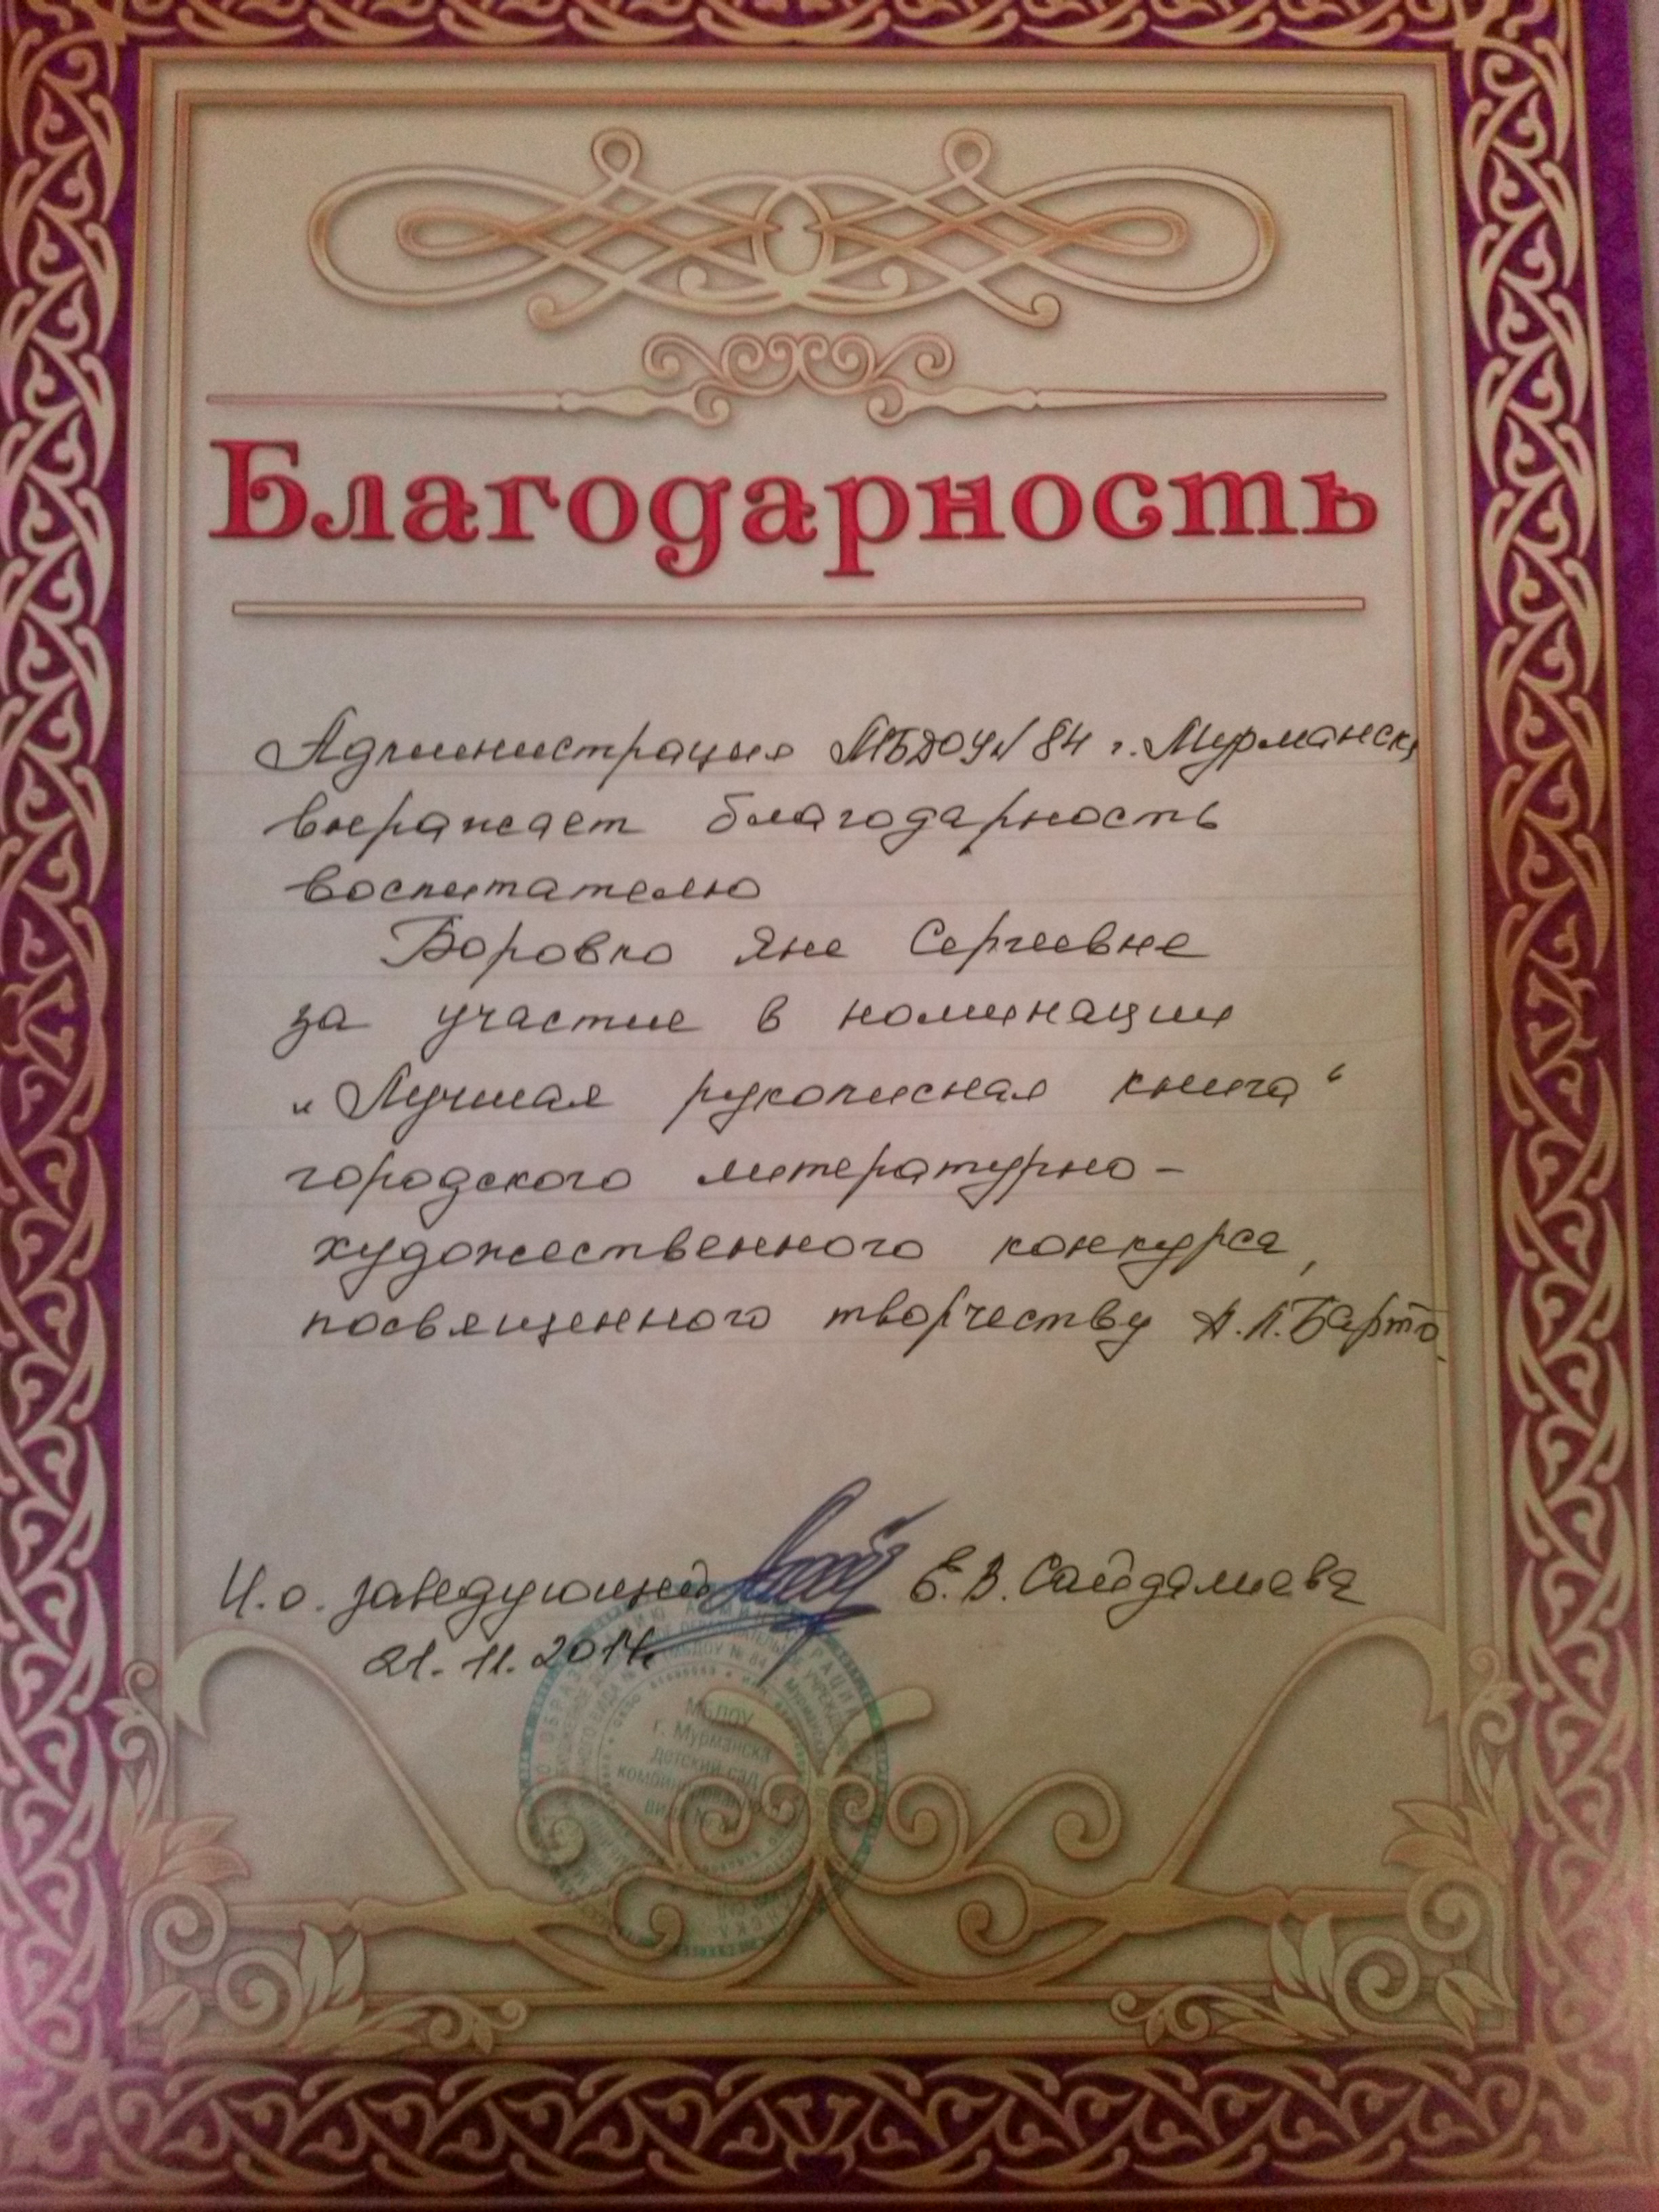 Благодарность
Администрация МБДОУ N 84 г. Мурманска
выражает благодарность
воспитателю
Боровко Яне Сергеевне
за участие в номинации
„Лучшая рукописная книга“
городского литературно-
художественного конкурса,
посвященного творчеству А.Л. Барто.
И.о. заведующей Е.В. Сайдалиева
21.11.2014г.
МБДОУ
г. Мурманска
детский сад